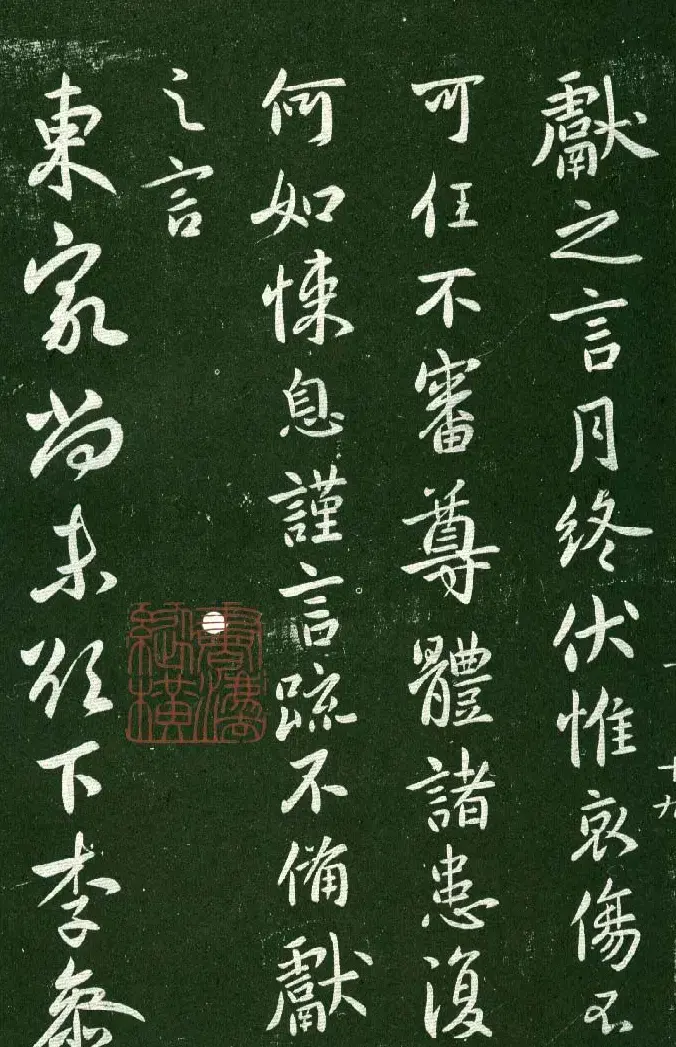 獻之言月終伏惟哀傷不
可任不審尊體諸患復
何如悚息謹言疏不備獻
之言
東家尚未欲下李參
十九